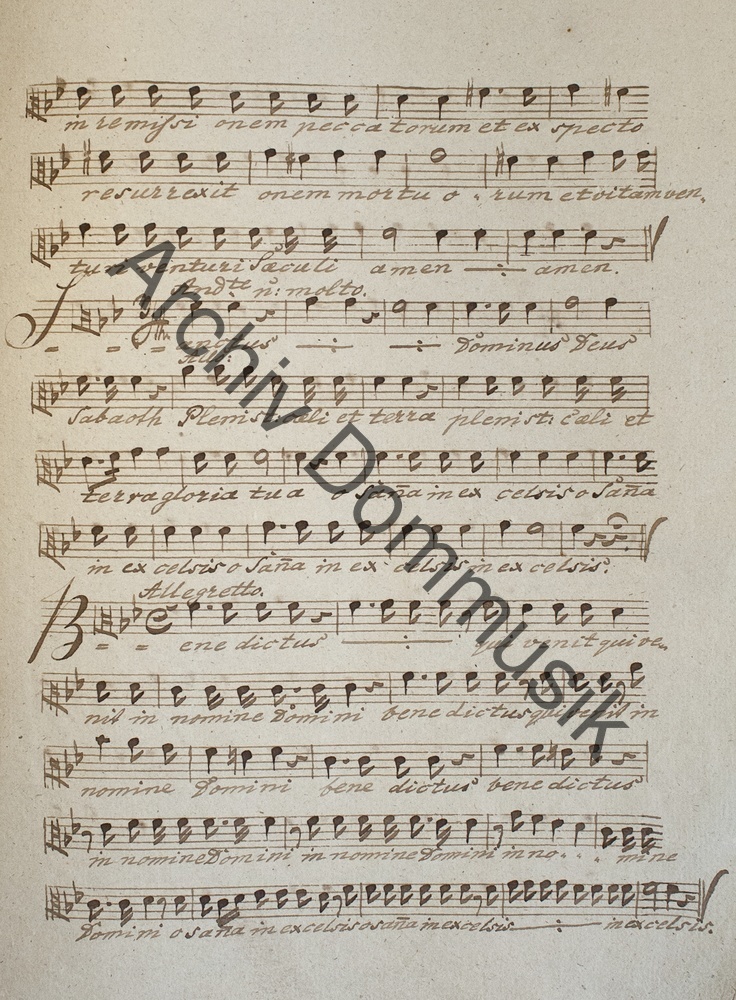 in remissi onem peccatorum et ex specto
resurrexit onem mortu o - rum et vitam ven,
turi venturi Sæculi amen amen.
And:te n: molto.
S
- - - anctus Dominus Deus
All:
Sabaoth Pleni st: cæli et terra pleni st: cæli et
terra gloria tua o Sañña in ex celsis o Sañña
in ex celsis o Sañña in ex celsis in ex celsis.
Allegretto.
B
= = ene dictus qui venit qui ve,
nit in nomine Domini bene dictus qui venit in
nomine Domini bene dictus bene dictus
in nomine Domini in nomine Domini in no - - - mine
Domini o sañña in excelsis o sañña in excelsis in excelsis.
Archiv Dommusik